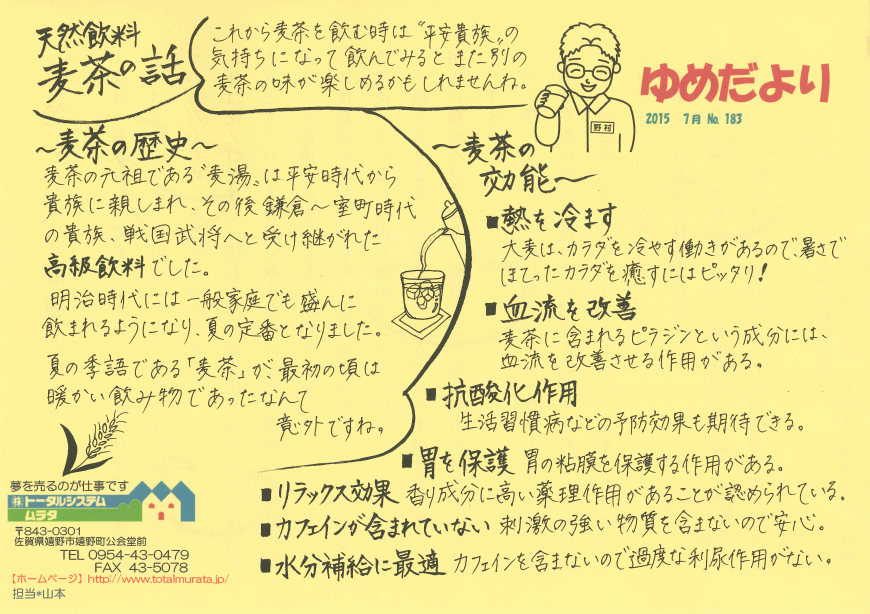 天然飲料
麦茶の話
これから麦茶を飲む時は“平安貴族”の
気持ちになって飲んでみるとまた別の
麦茶の味が楽しめるかもしれませんね。
野村
ゆめだより
2015 7月 No.183
～麦茶の歴史～
麦茶の元祖である“麦湯”は平安時代から
貴族に親しまれ、その後鎌倉～室町時代
の貴族、戦国武将へと受け継がれた
高級飲料でした。
明治時代には一般家庭でも盛んに
飲まれるようになり、夏の定番となりました。
夏の季語である「麦茶」が、最初の頃は
暖かい飲み物であったなんて
意外ですね。
～麦茶の
効能～
■熱を冷ます
大麦は、カラダを冷やす働きがあるので、暑さで
ほてったカラダを癒すにはピッタリ!
■血流を改善
麦茶に含まれるピラジンという成分には、
血流を改善させる作用がある。
■抗酸化作用
生活習慣病などの予防効果も期待できる。
■胃を保護 胃の粘膜を保護する作用がある。
■リラックス効果 香り成分に高い薬理作用があることが認められている。
■カフェインが含まれていない 刺激の強い物質を含まないので安心。
■水分補給に最適 カフェインを含まないので過度な利尿作用がない。
夢を売るのが仕事です
㈱トータルシステム
ムラタ
〒843-0301
佐賀県嬉野市嬉野町公会堂前
TEL 0954-43-0479
FAX 43-5078
【ホームページ】http://www.totalmurata.jp/
担当*山本